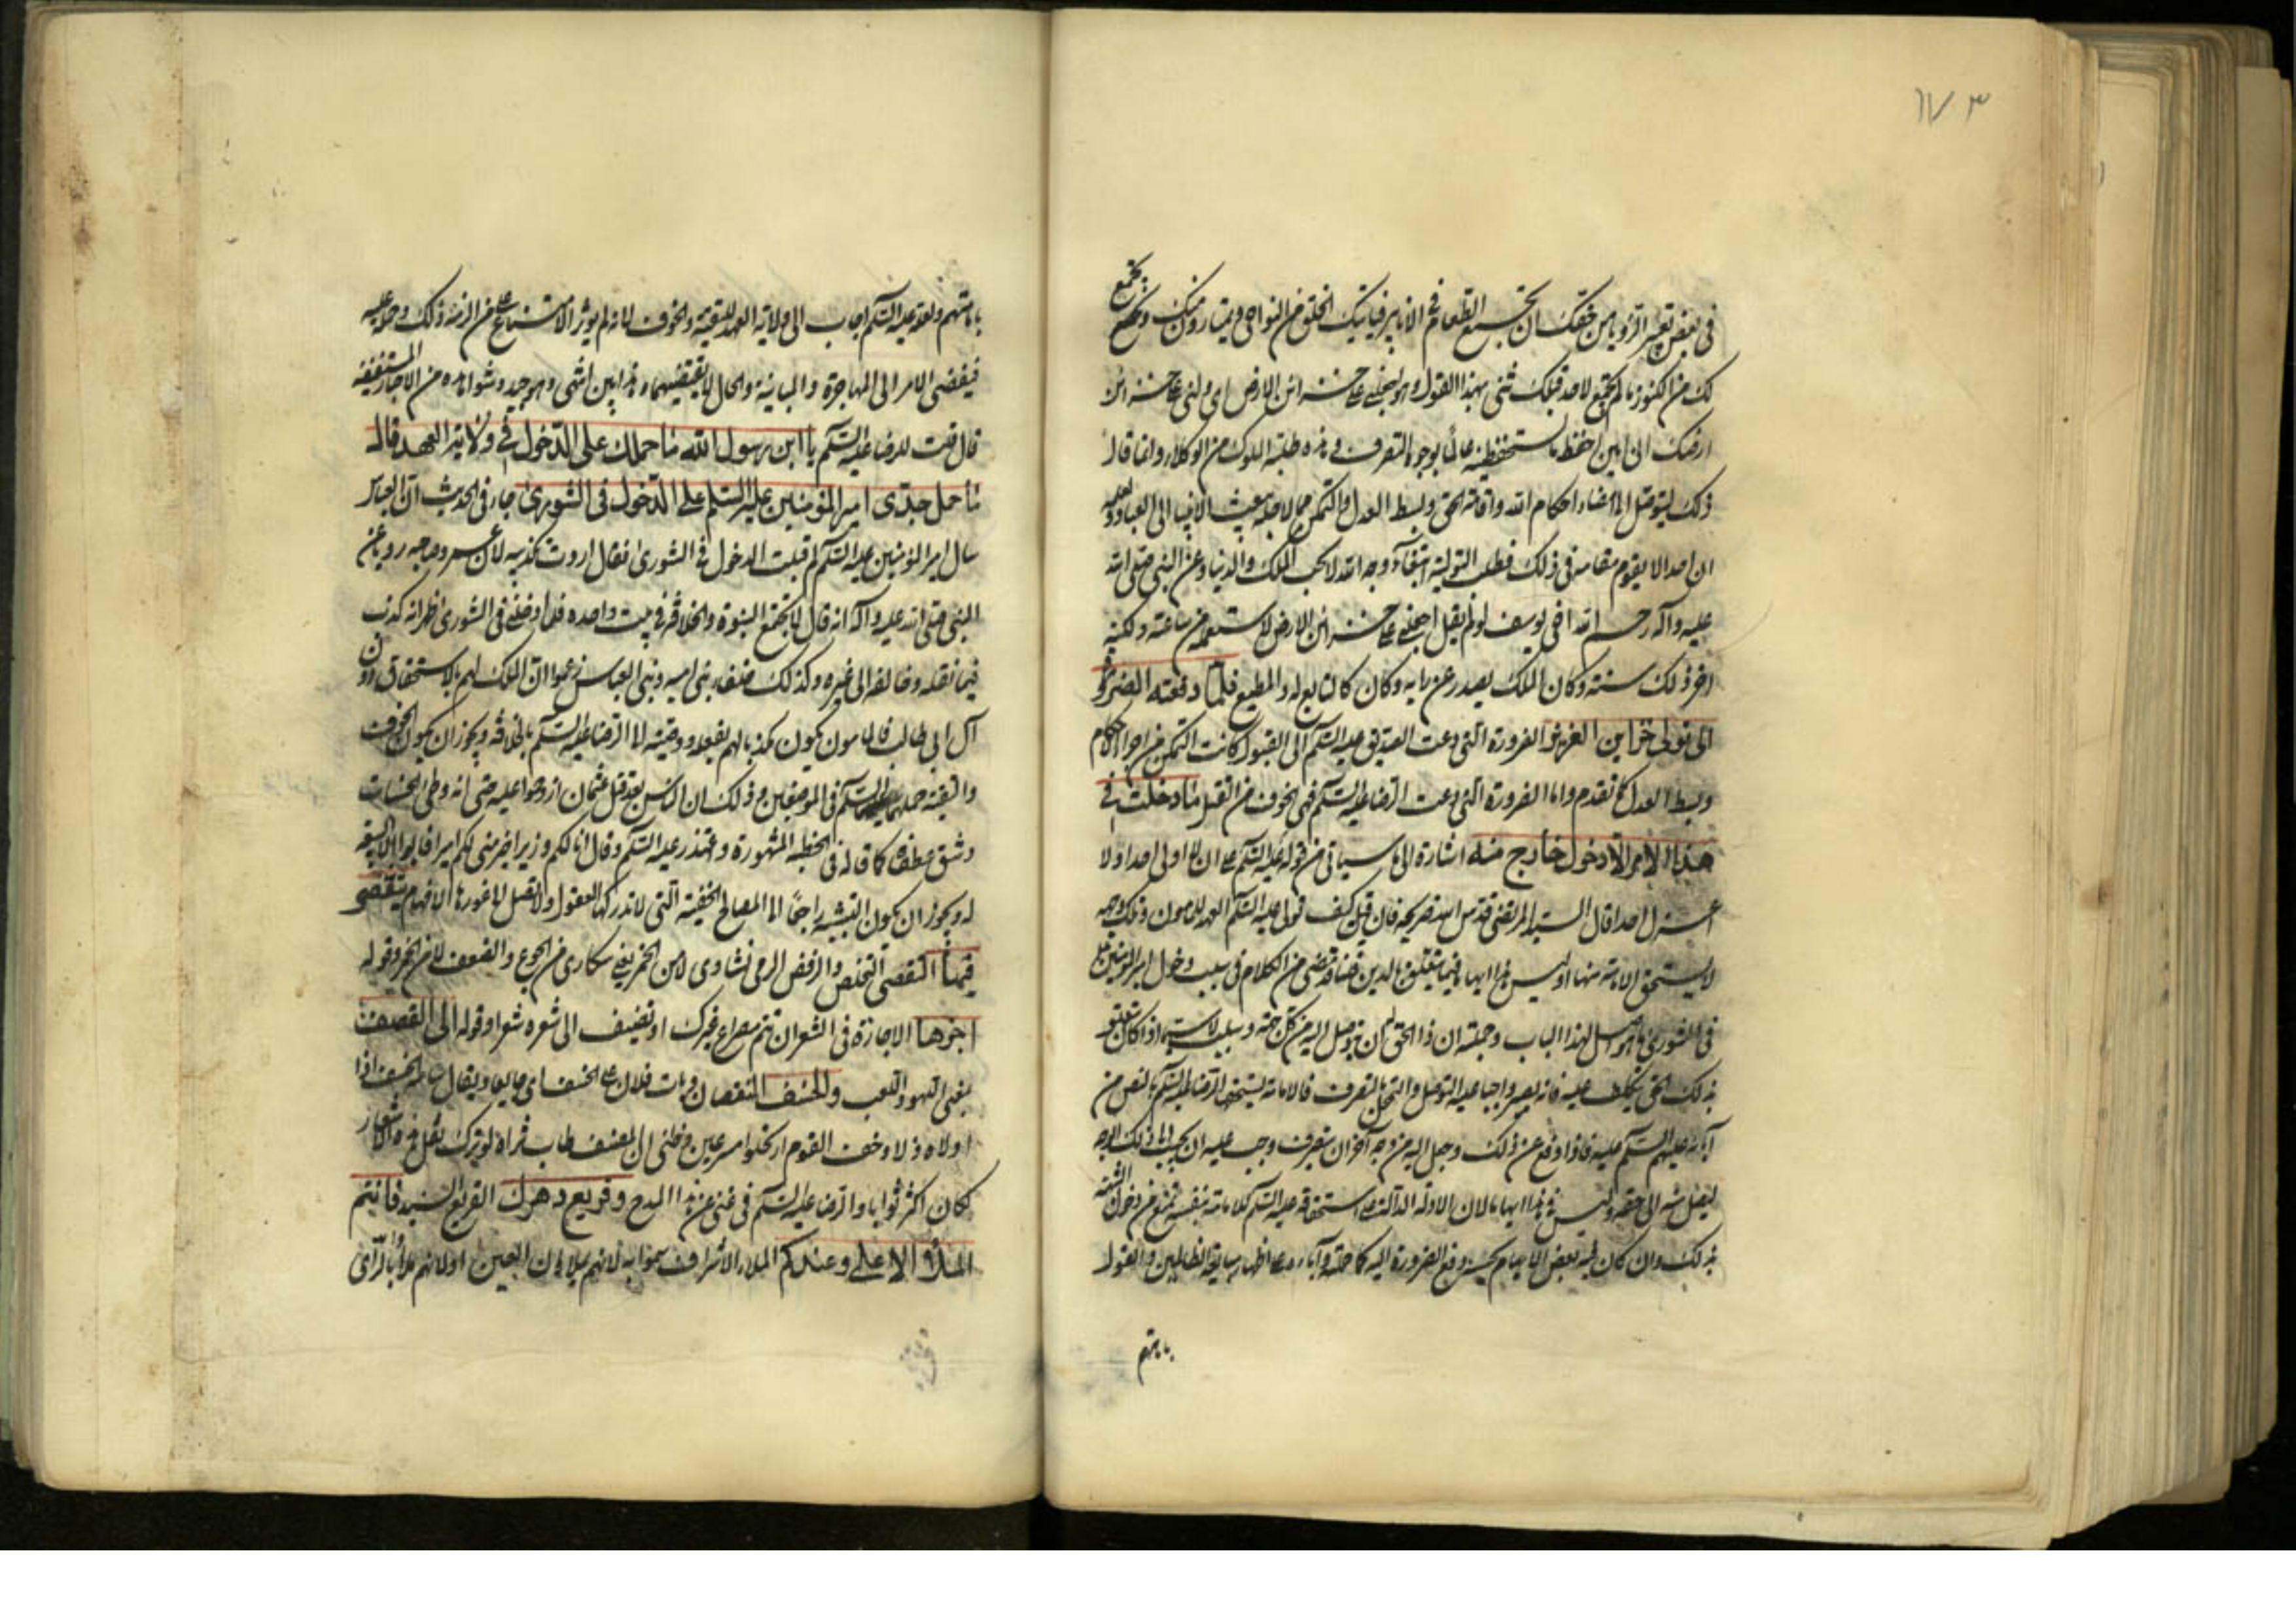 ١٧٣
في بعض تعبير الرؤيا من حقك ان تجمع الطعام في الانابير فياتيك الخلق من النواحي ويمتارون منك ويجتمع
لك من الكنوز ما لم يجتمع لاحد قبلك ثنى بهذا القول وهو اجعلني على خزائن الارض اي ولني على خزائن
ارضك اني امين احفظ ما تستحفظنيه عالم بوجوه التصرف وهذه طلبة الملوك من الوكلاء وانما قال
ذلك ليتوصل الى امضاء احكام الله واقامة الحق وبسط العدل والتمكن مما لاجله يبعث الانبياء الى العباد ولعلمه
ان احدا لا يقوم مقامه في ذلك فطلب التولية ابتغاء وجه الله لا لحب الملك والدنيا وعن النبي صلى الله
عليه وآله رحم الله اخي يوسف لو لم يقل اجعلني على خزائن الارض لاستعمله من ساعته ولكنه
اخر ذلك سنة وكان الملك يصدر عن رايه وكان كالتابع له والمطيع فلما دفعته الضرورة
الى تولى خزاين العزيز الضرورة التي دعت الصديق عليه السلم الى القبول كانت التمكن من اجراء الاحكام
وبسط العدل كما تقدم واما الضرورة التي دعت الرضا عليه السلم فهي الخوف من القتل ما دخلت في
هذا الامر الا دخول خارج منه اشارة الى ما سياتي من قوله عليه السلم على ان لا اولى احدا ولا
اعزل احدا قال السيد المرتضى قدس الله ضريحه فان قيل كيف تولى عليه السلم العهد للمامون وتلك جهة
لا يستحق الامامة منها اوليس هذا ايهاما فيما يتعلق بالدين قلنا قد مضى من الكلام في سبب دخول امير المؤمنين
في الشورى ما هو اصل لهذا الباب وجملته ان ذا الحق له ان يتوصل اليه من كل جهة وسبب لا سيما اذا كان يتعلق
بذلك الحق تكليف عليه فانه يصير واجبا عليه التوصل والتحمل بالتصرف فالامامة يستحقها الرضا عليه السلم بالنص من
آبائه عليهم السلم عليه فاذا دفع عن ذلك وجعل اليه من وجه آخر ان يتصرف وجب عليه ان يجيب الى ذلك الوجه
ليصل منه الى حقه وليس في هذا ايهام لان الادلة الدالة على استحقاقه عليه السلم للامامة بنفسه تمنع من دخول الشبهة
بذلك وان كان فيه بعض الايهام يحسنه دفع الضرورة اليه كما حملته وآباءه على اظهار متابعة الظالمين والقول
بامامتهم
بامامتهم ولعله عليه السلم اجاب الى ولاية العهد للتقية والخوف لانه لم يؤثر الامتناع على من الزمه ذلك وحمله عليه
فيفضي الامر الى المهاجرة والمباينة والحال لا يقتضيهما وهذا بين انتهى وهو جيد وشواهده من الاخبار المستفيضة
قال قلت للرضا عليه السلم يا ابن رسول الله ما حملك على الدخول في ولاية العهد قال
ما حمل جدي امير المؤمنين عليه السلم على الدخول في الشورى جاء في الحديث ان العباس
سال امير المؤمنين عليه السلم لم قبلت الدخول في الشورى فقال اردت تكذيبه لان عمر وصاحبه رويا عن
النبي صلى الله عليه وآله انه قال لا تجتمع النبوة والخلافة في بيت واحد فلما ادخلني في الشورى ظهر انه كذب
فيما نقله وخالفه الى غيره وكذلك خلفاء بني اميه وبني العباس زعموا ان الملك لهم بالاستحقاق دون
آل ابي طالب فالمامون يكون مكذبا لهم بفعله ووصيته الى الرضا عليه السلم بالخلافة ويجوز ان يكون الخوف
والتقية حملهما عليهما السلم في الموضعين وذلك ان الناس بعد قتل عثمان ازدحموا عليه حتى انه وطي الحسنان
وشق عطفاه كما قاله في الخطبة المشهورة واعتذر عليه السلم وقال انا لكم وزيرا خير مني لكم اميرا فابوا الا البيعة
له ويجوز ان يكون التشبيه راجعا الى المصالح الخفية التي لا تدركها العقول ولا تصل الى غورها الافهام يتقصى
فيها التقصي التخلص والرفض الرمي نشاوى لا من الخمر يعني سكارى من الجوع والضعف لا من الخمر وقوله
اجزها الاجازة في الشعر ان تتم مصراع غيرك او تضيف الى شعره شعرا وقوله الى القصف
بمعنى اللهو واللعب والخسف النقصان وبات فلان على الخسف اي جايعا ويقال سامه الخسف اذا
اولاه ذلا وخف القوم ارتحلوا مسرعين وظني ان المصنف طاب ثراه لو ترك نقل هذه الاشعار
لكان اكثر ثوابا والرضا عليه السلم في غنى عن هذا المدح وقريع دهرك القريع السيد فانتم
الملأ الاعلى وعندكم الملاء الاشراف سموا به لانهم يملاون العين او لانهم ملأ بالراي